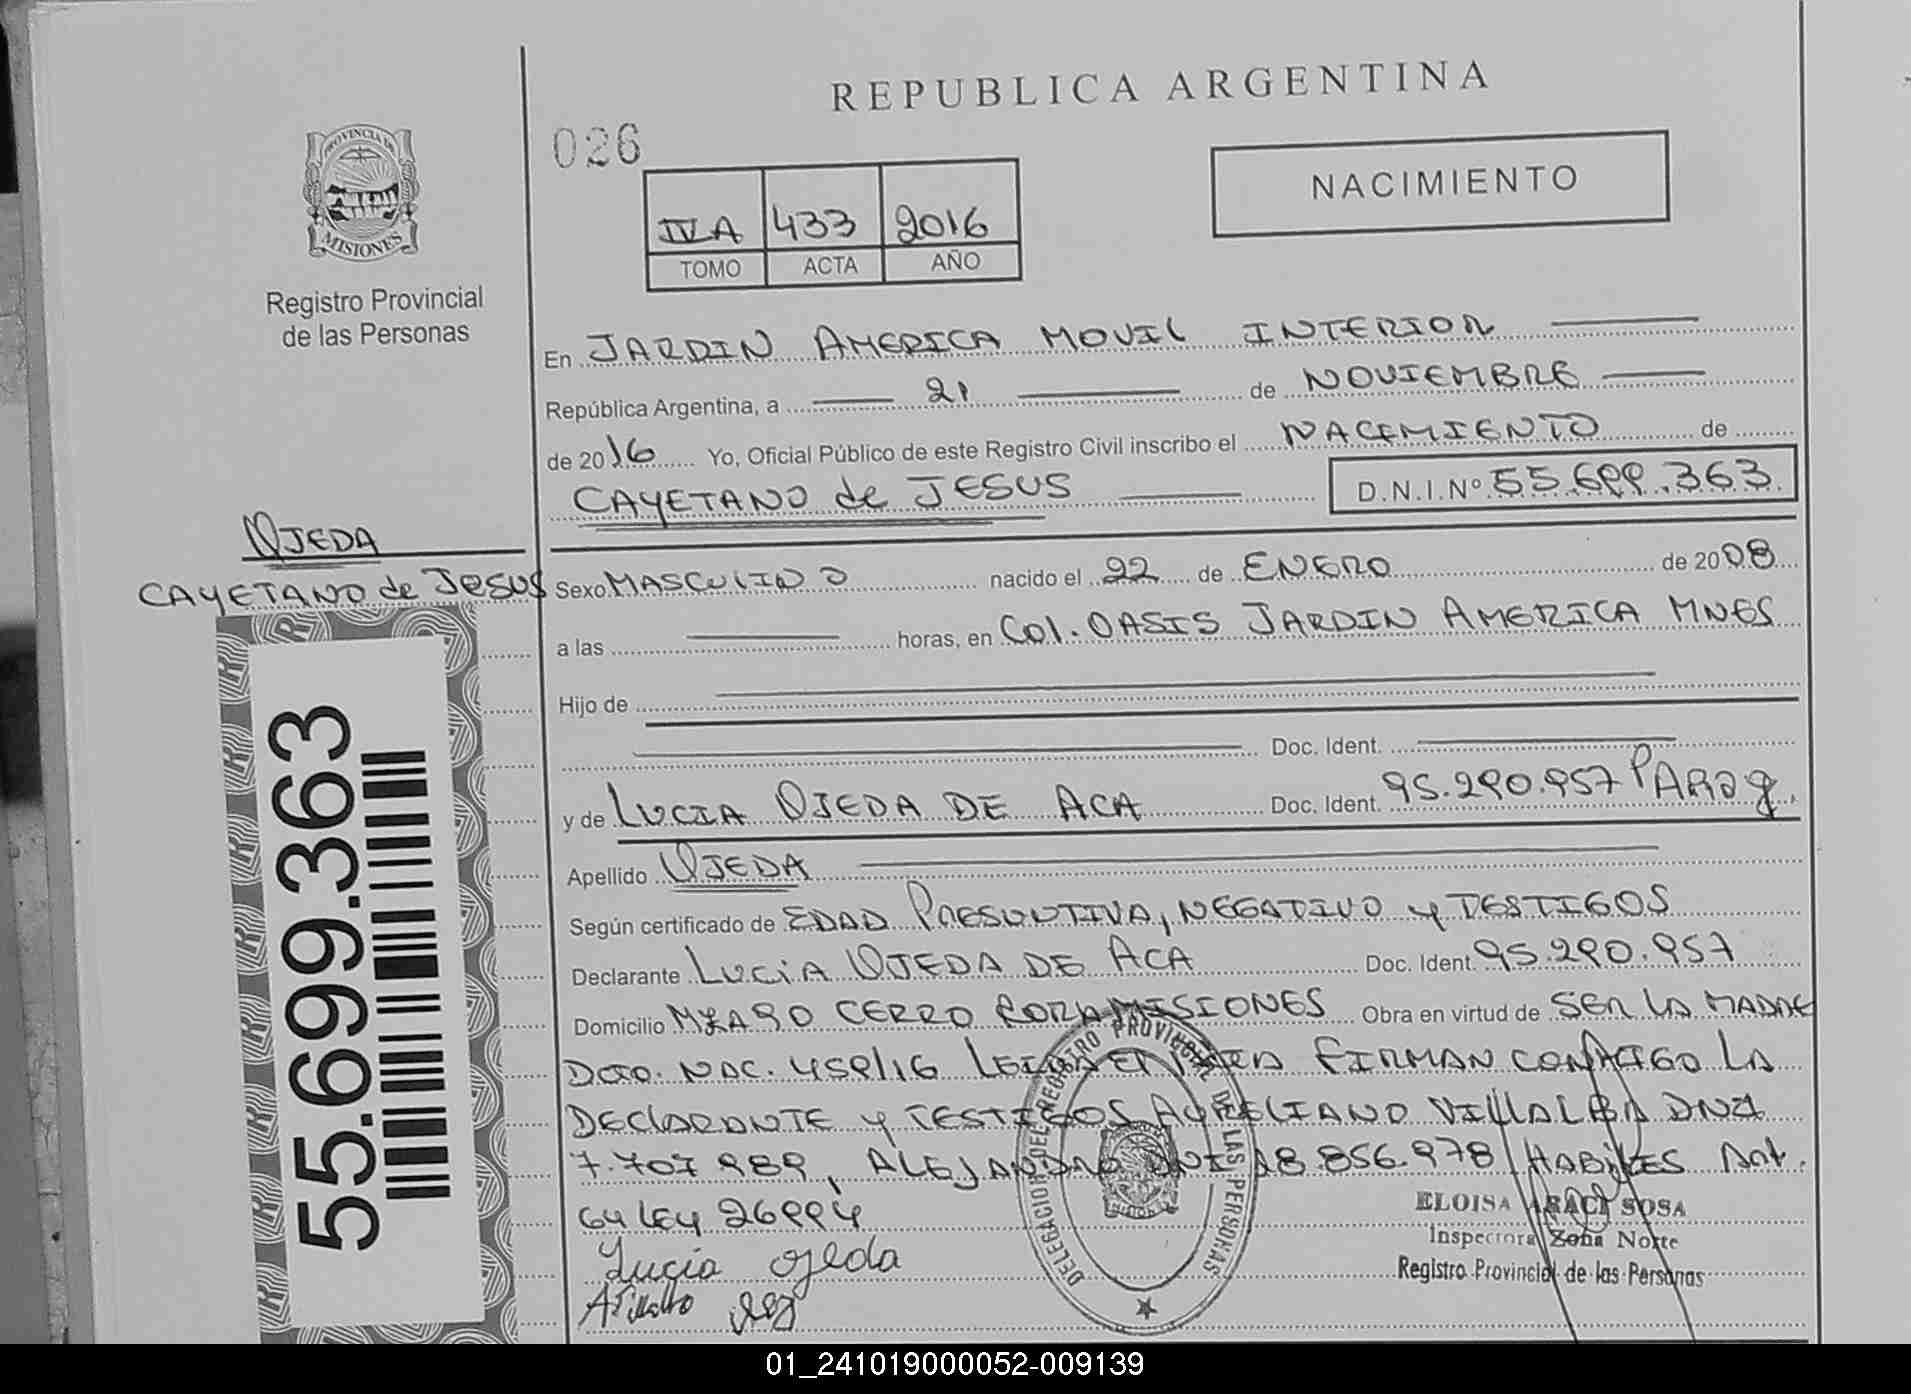 REPUBLICA ARGENTINA
026
NACIMIENTO
PROVINCIA DE
MISIONES
IVA 433 2016
TOMO ACTA AÑO
Registro Provincial
de las Personas
En JARDIN AMERICA MOVIL INTERIOR
República Argentina, a 21 de NOVIEMBRE
de 2016 Yo, Oficial Público de este Registro Civil inscribo el NACIMIENTO de
CAYETANO de JESUS D.N.I.Nº 55.699.363
OJEDA
CAYETANO de JESUS
Sexo MASCULINO nacido el 22 de ENERO de 2008
a las horas, en Col. OASIS JARDIN AMERICA MNES
Hijo de
Doc. Ident.
y de LUCIA OJEDA DE ACA Doc. Ident. 95.290.957 PARAg.
Apellido OJEDA
Según certificado de EDAD PRESUNTIVA, NEGATIVO y TESTIGOS
Declarante LUCIA OJEDA DE ACA Doc. Ident. 95.290.957
Domicilio CERRO CORA MISIONES Obra en virtud de SER LA MADRE
DCTO. NAC. 459/16 LEIDA EL ACTA FIRMAN CONMIGO LA
DECLARANTE y TESTIGOS AURELIANO VILLALBA DNI
7.707.989, ALEJANDRO DNI 18.856.978 HABILES Art.
64 LEY 26994
Lucia ojeda
55.699.363
DELEGACION DEL REGISTRO PROVINCIAL DE LAS PERSONAS
ELOISA ARACI SOSA
Inspectora Zona Norte
Registro Provincial de las Personas
01_241019000052-009139